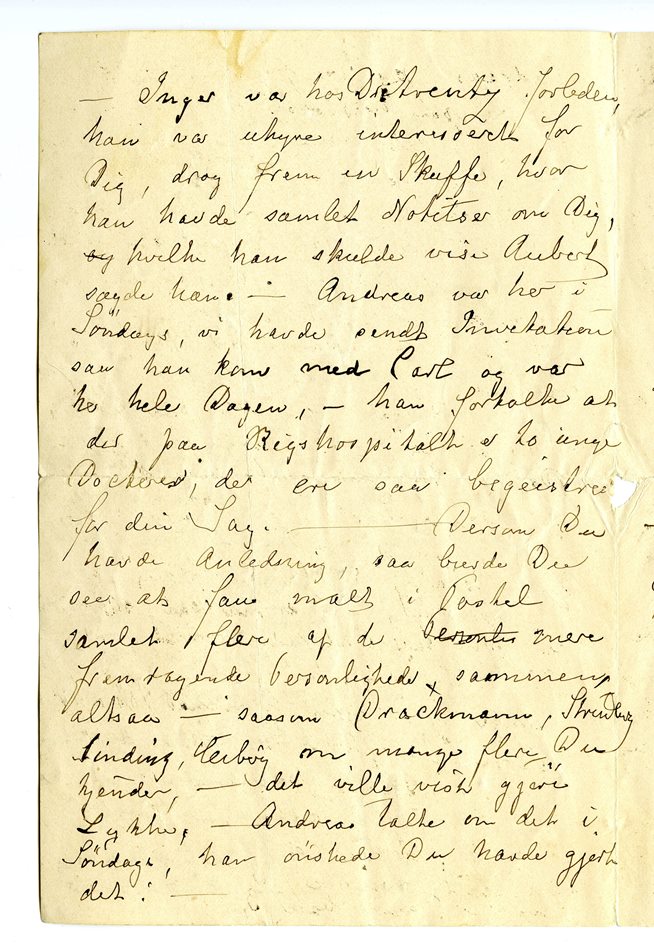 — Inger var hos Dr: Arentz forleden,
han var uhyre interesseret for
Dig, drog frem en Skuffe, hvor
han havde samlet Notitser om Dig,
og hvilke han skulde vise Aubert
sagde han. — Andreas var her i
Söndags, vi havde sendt Invitation
saa han kom med Carl og var
her hele Dagen, — han fortalte at
der paa Rigshospitalt er to unge
Doctere, der ere saa begeistree
for din Sag. — Dersom Du
havde Anledning, saa burde Du
see at faae malt i Pastel
samlet flere af de mere
fremragende Personlighede, sammen,
altsaa — saasom Drackmann, Strinberg
Sinding, Heiberg om mange flere Du
kjender, — det ville vist gjøre
Lykke, — Andreas talte om det i
Söndags, han önskede Du havde gjort
det! —